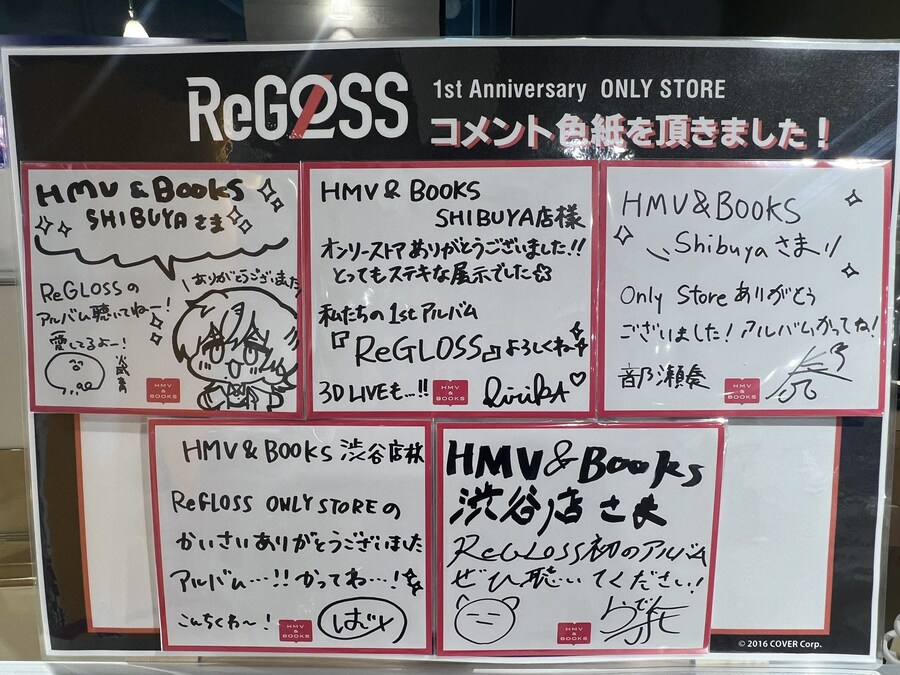 ReGLOSS
1st Anniversary ONLY STORE
コメント色紙を頂きました!
HMV & BOOKS
SHIBUYAさま
ありがとうございました
ReGLOSSの
アルバム聴いてねー!
愛してるよー!
火威青
HMV & BOOKS
HMV & BOOKS
SHIBUYA店様
オンリーストアありがとうございました!!
とってもステキな展示でした
私たちの1stアルバム
『ReGLOSS』よろしくね
3D LIVEも…!!
RiRikA♡
HMV & BOOKS
HMV&BOOKS
Shibuyaさま
Only Storeありがとう
ございました!アルバムかってね!
音乃瀬奏
HMV & BOOKS
HMV & BOOKS 渋谷店様
ReGLOSS ONLY STOREの
かいさいありがとうございました
アルバム…!!かってね…!
こんちくわ〜!
はじめ
HMV & BOOKS
HMV & Books
渋谷店さま
ReGLOSS初のアルバム
ぜひ聴いてください!
HMV & BOOKS
© 2016 COVER Corp.